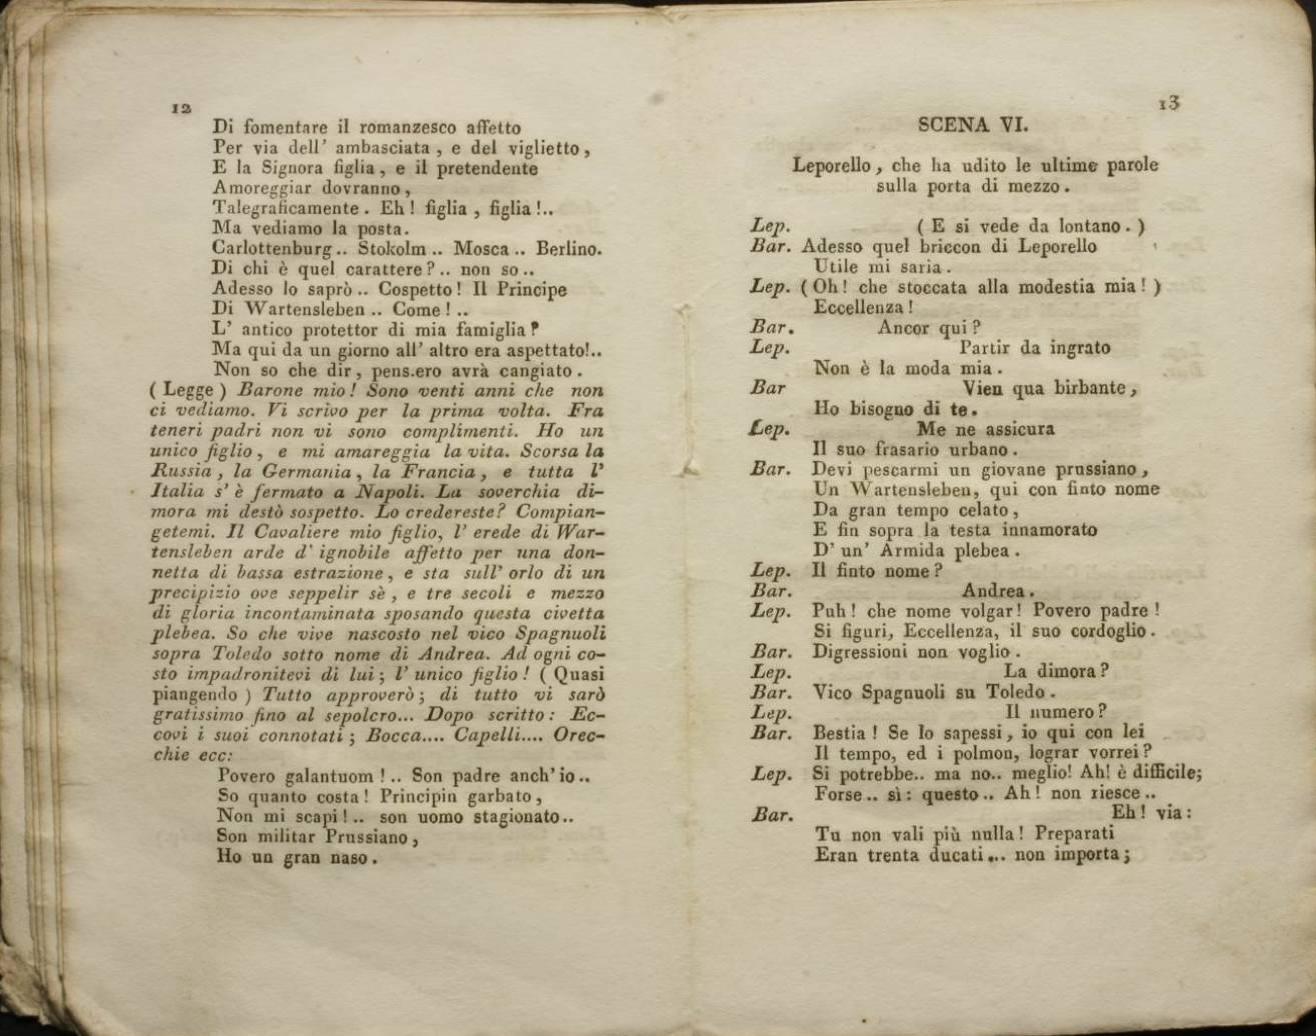 12
Di fomentare il romanzesco affetto
Per via dell' ambasciata , e del viglietto ,
E la Signora figlia , e il pretendente
Amoreggiar dovranno ,
Talegraficamente . Eh ! figlia , figlia !..
Ma vediamo la posta .
Carlottenburg .. Stokolm .. Mosca .. Berlino.
Di chi è quel carattere ? .. non so ..
Adesso lo saprò .. Cospetto ! Il Principe
Di Wartensleben .. Come ! ..
L' antico protettor di mia famiglia ?
Ma qui da un giorno all' altro era aspettato!..
Non so che dir , pens.ero avrà cangiato .
( Legge ) Barone mio ! Sono venti anni che non
ci vediamo. Vi scrivo per la prima volta. Fra
teneri padri non vi sono complimenti. Ho un
unico figlio , e mi amareggia la vita. Scorsa la
Russia , la Germania , la Francia , e tutta l'
Italia s' è fermato a Napoli. La soverchia di-
mora mi destò sospetto. Lo credereste? Compian-
getemi. Il Cavaliere mio figlio, l' erede di War-
tensleben arde d' ignobile affetto per una don-
netta di bassa estrazione , e sta sull' orlo di un
precipizio ove seppelir sè , e tre secoli e mezzo
di gloria incontaminata sposando questa civetta
plebea. So che vive nascosto nel vico Spagnuoli
sopra Toledo sotto nome di Andrea. Ad ogni co-
sto impadronitevi di lui ; l' unico figlio ! ( Quasi
piangendo ) Tutto approverò ; di tutto vi sarò
gratissimo fino al sepolcro... Dopo scritto : Ec-
covi i suoi connotati ; Bocca.... Capelli.... Orec-
chie ecc:
Povero galantuom ! .. Son padre anch' io ..
So quanto costa ! Principin garbato ,
Non mi scapi ! .. son uomo stagionato ..
Son militar Prussiano ,
Ho un gran naso .
13
SCENA VI.
Leporello , che ha udito le ultime parole
sulla porta di mezzo .
Lep. ( E si vede da lontano . )
Bar. Adesso quel briccon di Leporello
Utile mi saria .
Lep. ( Oh ! che stoccata alla modestia mia ! )
Eccellenza !
Bar. Ancor qui ?
Lep. Partir da ingrato
Non è la moda mia .
Bar Vien qua birbante ,
Ho bisogno di te .
Lep. Me ne assicura
Il suo frasario urbano .
Bar. Devi pescarmi un giovane prussiano ,
Un Wartensleben, qui con finto nome
Da gran tempo celato ,
E fin sopra la testa innamorato
D' un' Armida plebea .
Lep. Il finto nome ?
Bar. Andrea .
Lep. Puh ! che nome volgar ! Povero padre !
Si figuri, Eccellenza, il suo cordoglio .
Bar. Digressioni non voglio .
Lep. La dimora ?
Bar. Vico Spagnuoli su Toledo .
Lep. Il numero ?
Bar. Bestia ! Se lo sapessi , io qui con lei
Il tempo, ed i polmon, lograr vorrei ?
Lep. Si potrebbe.. ma no.. meglio! Ah! è difficile;
Forse .. sì : questo .. Ah ! non riesce ..
Bar. Eh ! via :
Tu non vali più nulla ! Preparati
Eran trenta ducati ... non importa ;